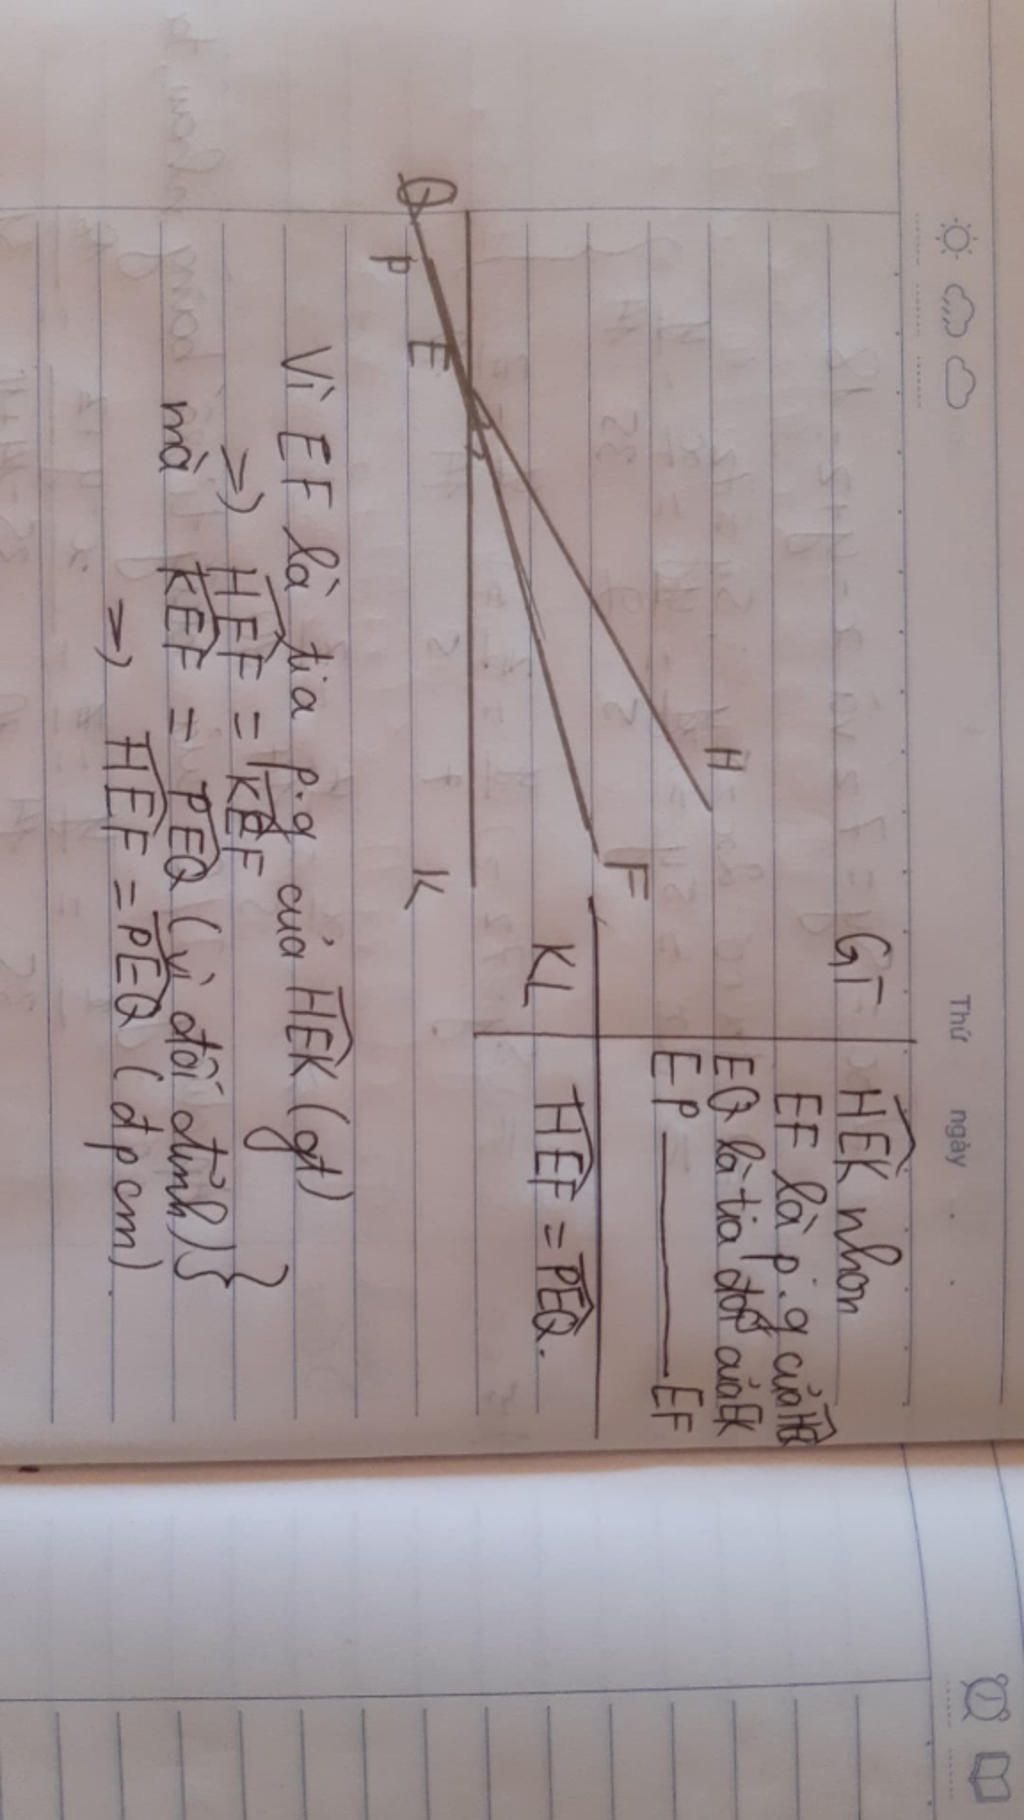 Thứ ngày
GT HEK nhọn
EF là p.g của HEK
EQ là tia đối của EK
EP ——— EF
KL HEF = PEQ.
H
F
K
E
P
Q
Vì EF là tia p.g của HEK (gt)
=> HEF = KEF
mà KEF = PEQ (vì đối đỉnh) }
=> HEF = PEQ (đpcm)